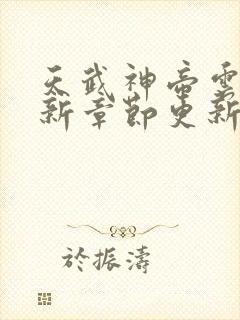 天武神帝雲
新章節更新
於振濤